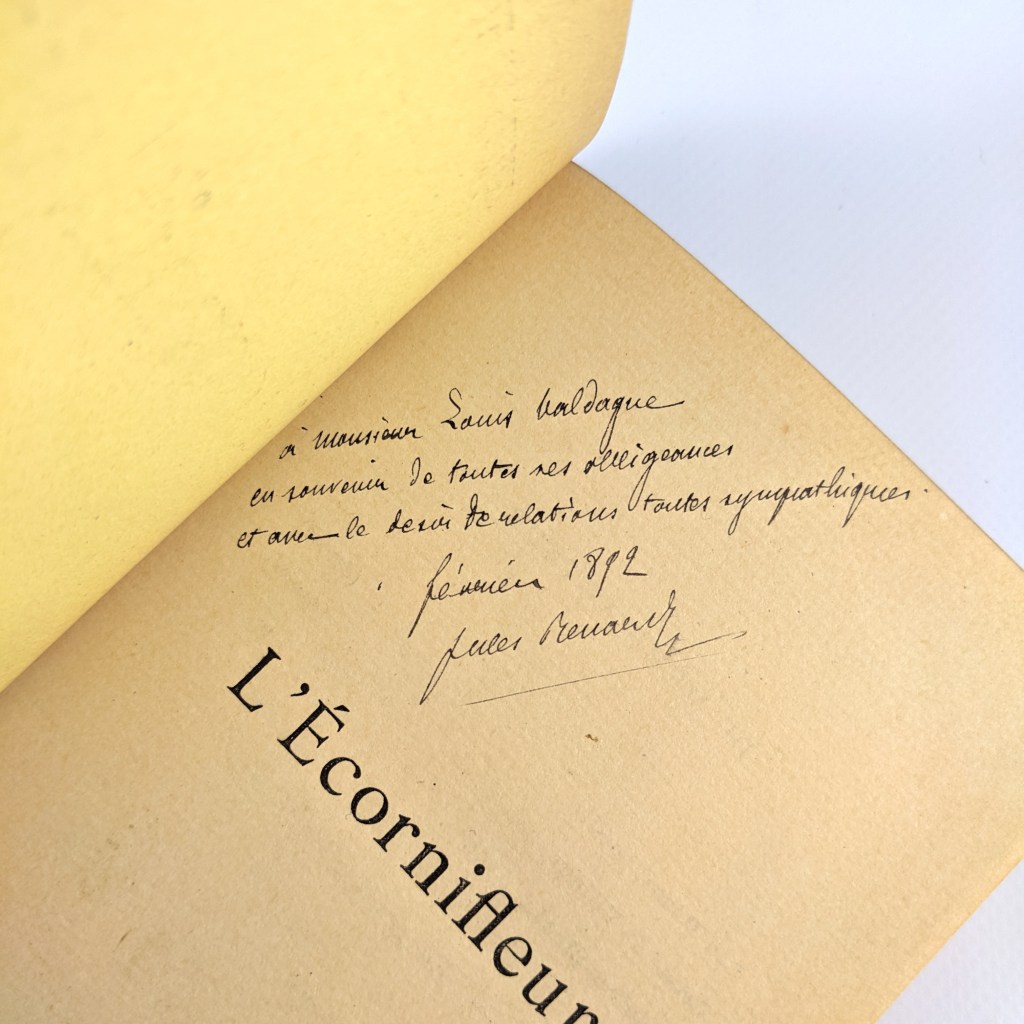 à monsieur Louis Valdagne
en souvenir de toutes ses obligeances
et avec le desir de relations toutes sympathiques.
février 1892
Jules Renard
L'Écornifleur